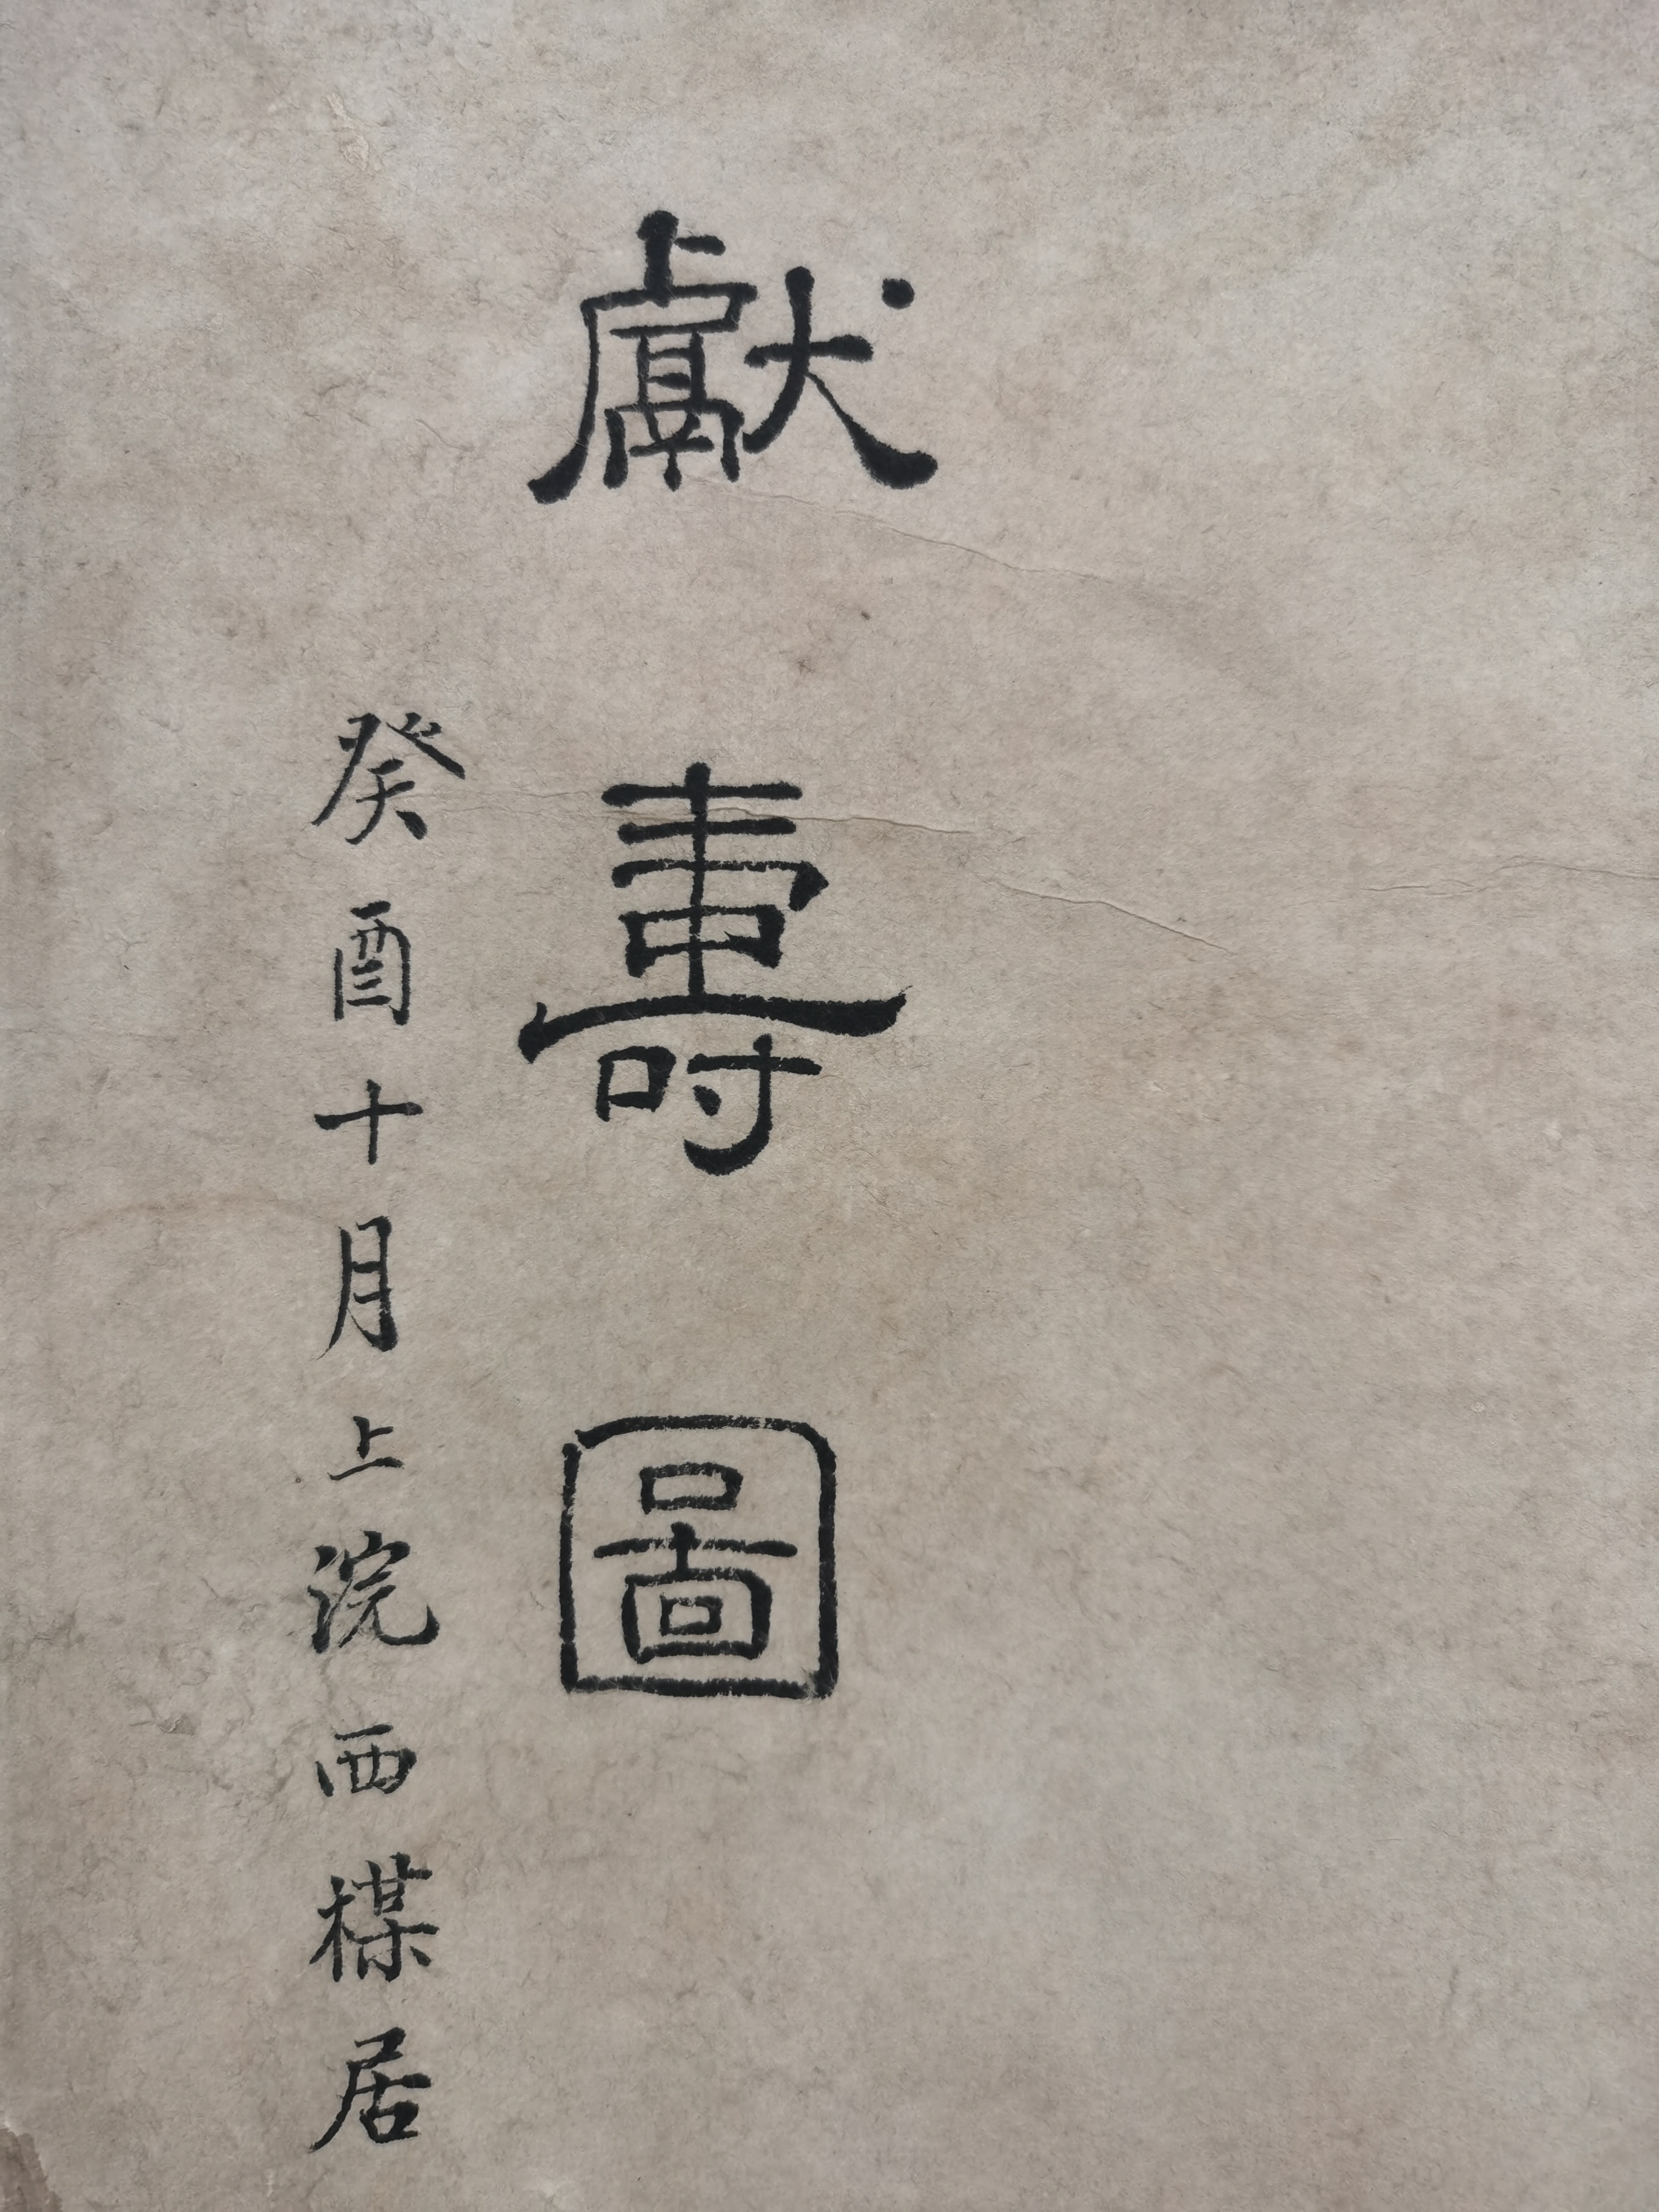 獻壽圖
癸酉十月上浣西楳居